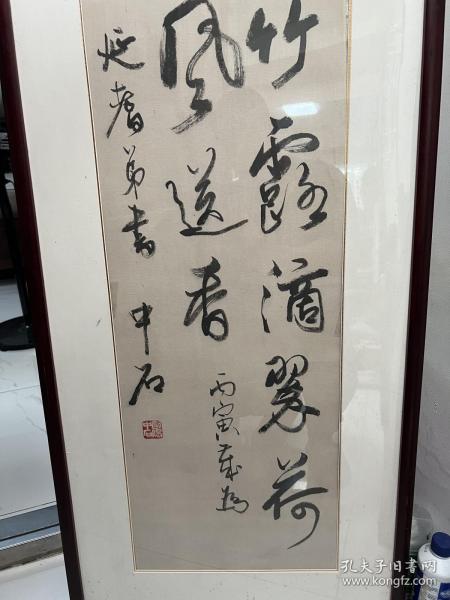 竹露滴翠荷
风送香
丙寅歲為
延耆弟書
中石
孔夫子旧书网
www.kongfz.com